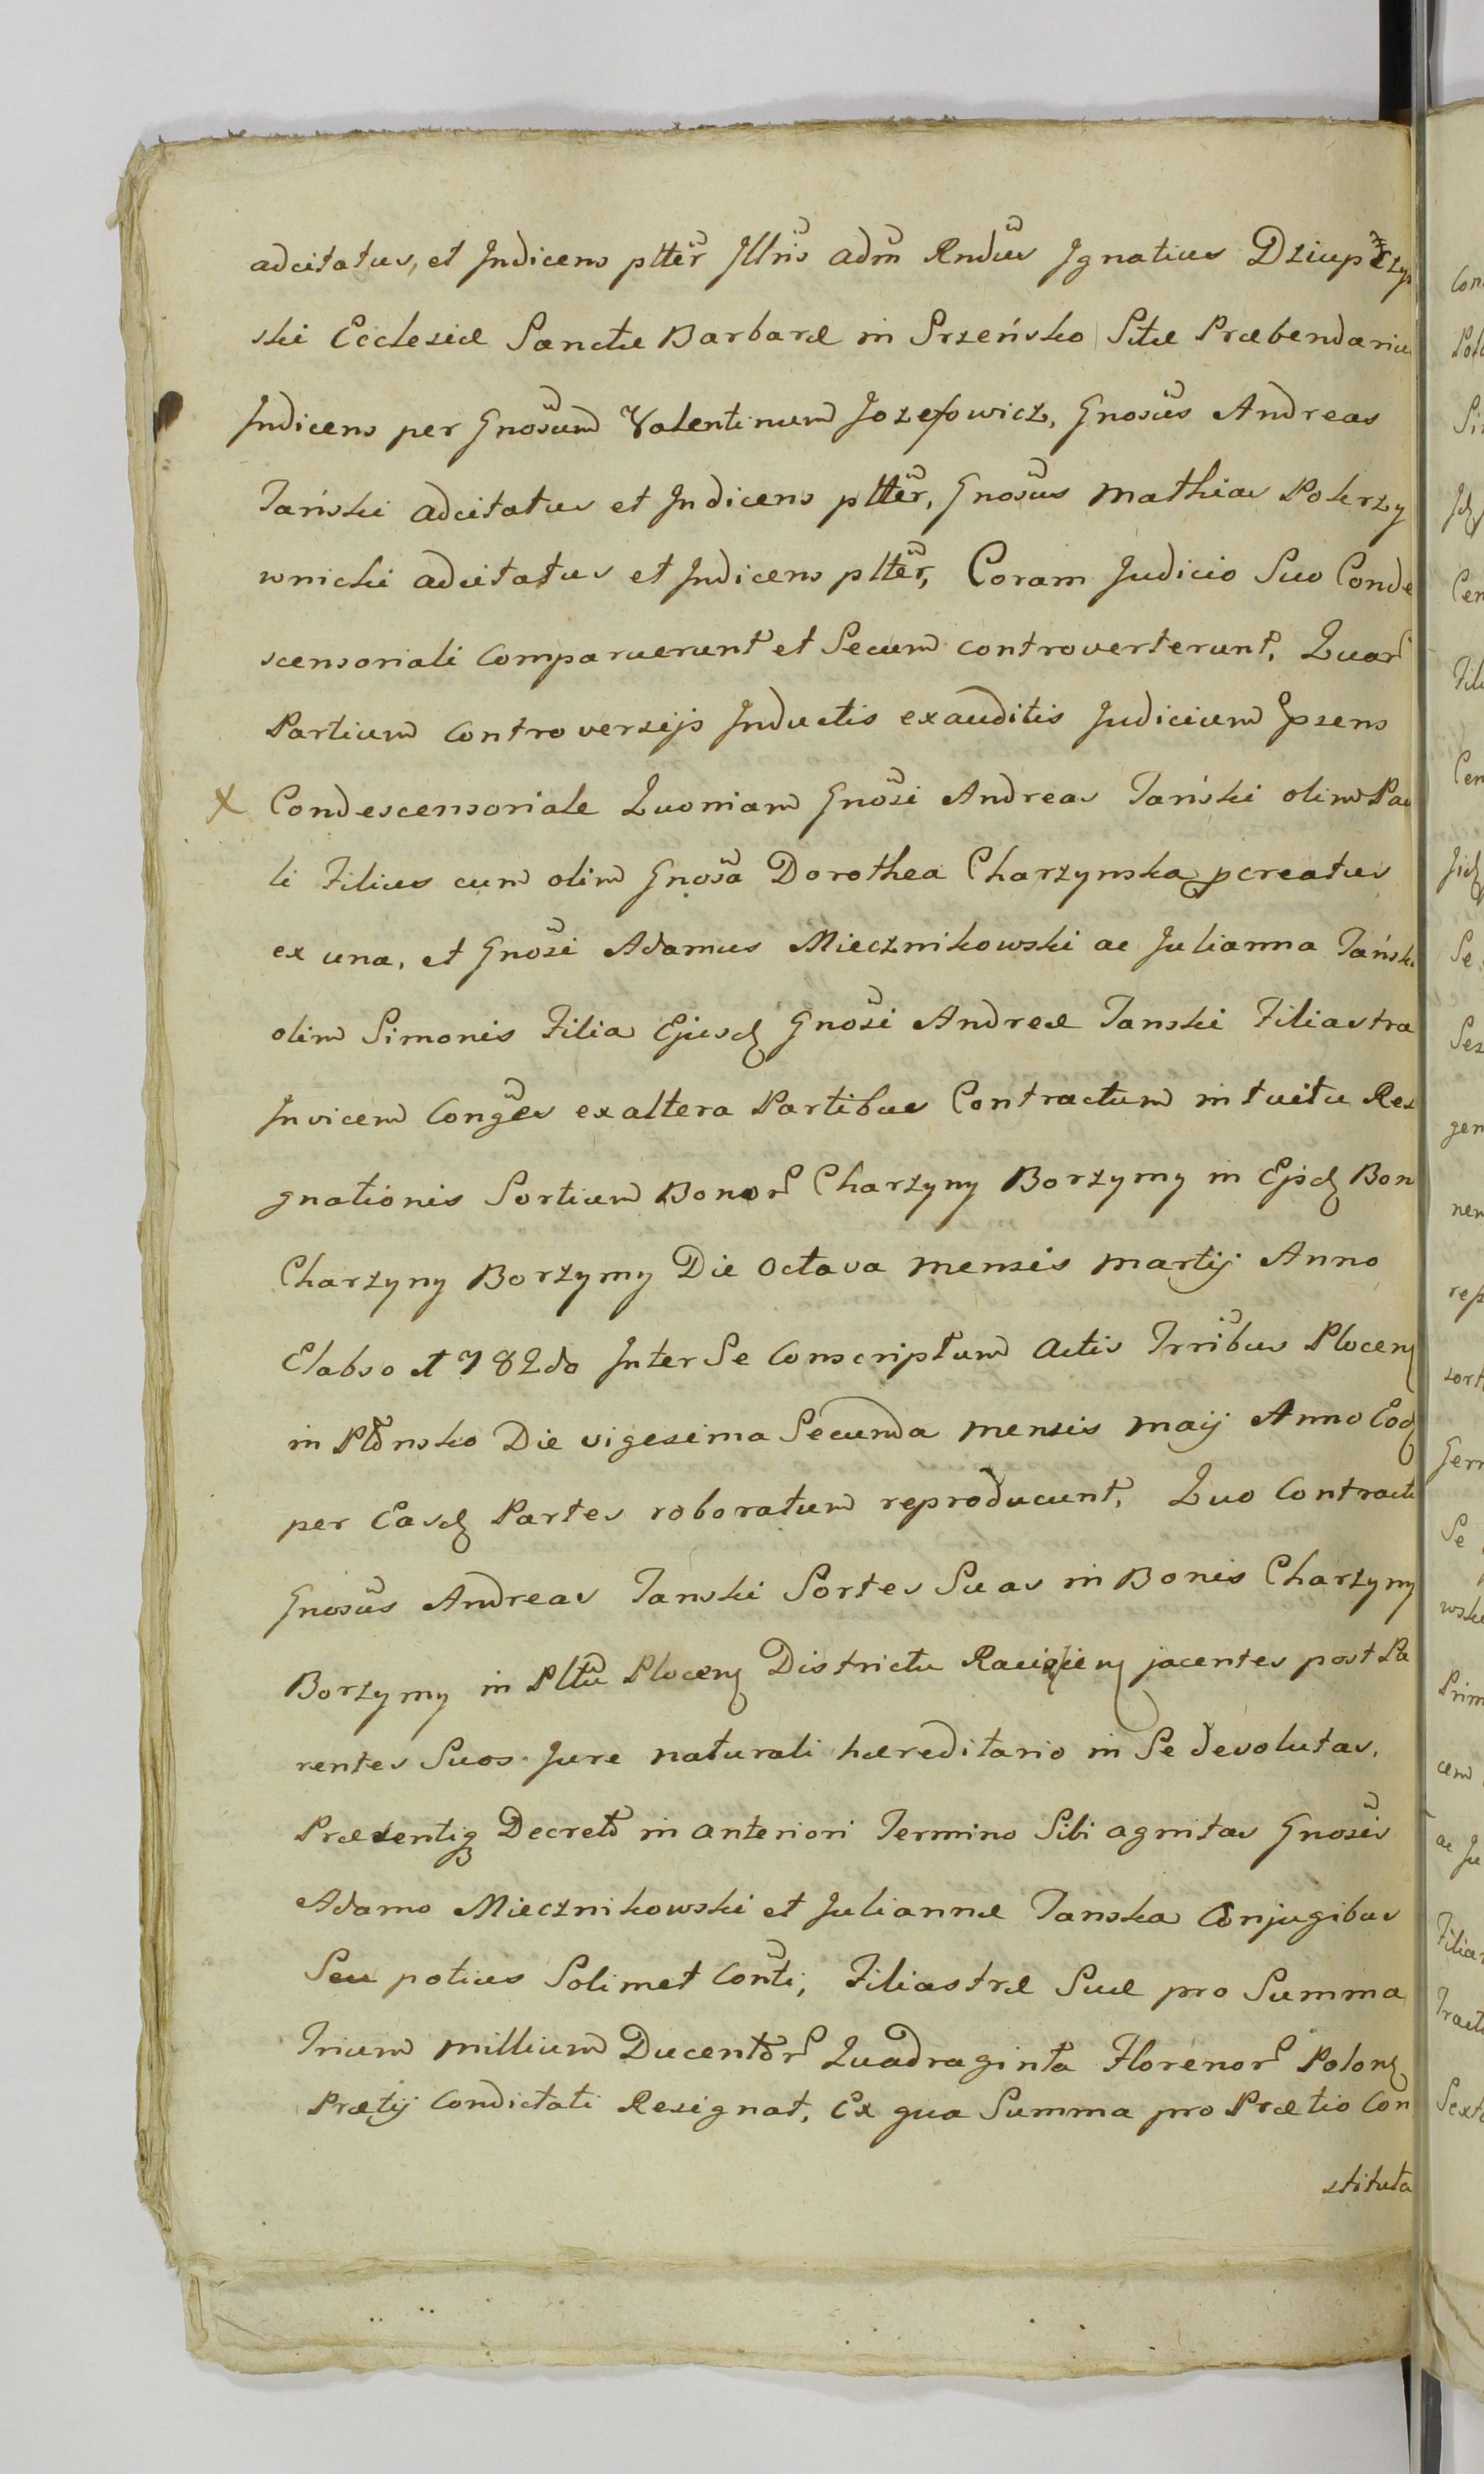 adcitatus, et Indicens pltter Jllris adm Rndus Ignatius Dziup
ski Ecclesiæ Sanctæ Barbaræ in Srzeńsko Sitæ Præbendariu
Indicens per Gnosum Valentinum Jozefowicz, Gnosus Andreas
Tański adcitatus et Indicens pltter, Gnosus Mathias Pokrzy
wnicki adcitatus et Indicens pltter, Coram Judicio Suo Conde
scensoriali comparuerunt et Secum controverterunt, Quar
Partium Controversijs Inductis exauditis Judicium Ipsens
x Condescensoriale Quoniam Gnosi Andreas Tański olim Pau
li Filius cum olim Gnosa Dorothea Charzynska pcreatus
ex una, et Gnosi Adamus Miecznikowski ac Julianna Tańsk
olim Simonis Filia Ejusd Gnosi Andreæ Tanski Filiastra
Invicem Conges ex altera Partibus Contractum intuitu Res
gnationis Sortium Bonor Charzyny Borzymy in Ejsd Bon
Charzyny Borzymy Die Octava mensis Martij Anno
Elabso 1782do Inter Se Conscriptum Actis Trribus Plocen
in Płonsko Die vigesima Secunda mensis Maij Anno Eod
per Easd Partes roboratum reproducunt, Quo Contractu
Gnosus Andreas Tanski Sortes Suas in Bonis Charzyny
Borzymy in Pltu Plocen Districtu Raciązien jacentes post Pa
rentes Suos Jure naturali hæreditario in Se devolutas,
Præsentiq Decreto in anteriori Termino Sibi agnitas Gnosis
Adamo Miecznikowski et Juliannæ Tanska Conjugibus
Seu potius Solimet Conti, Filiastræ Suæ pro Summa
Trium Millium Ducentor Quadraginta Florenor Polon
Prætij Condictati Resignat, Ex qua Summa pro Prætio Con
stituta